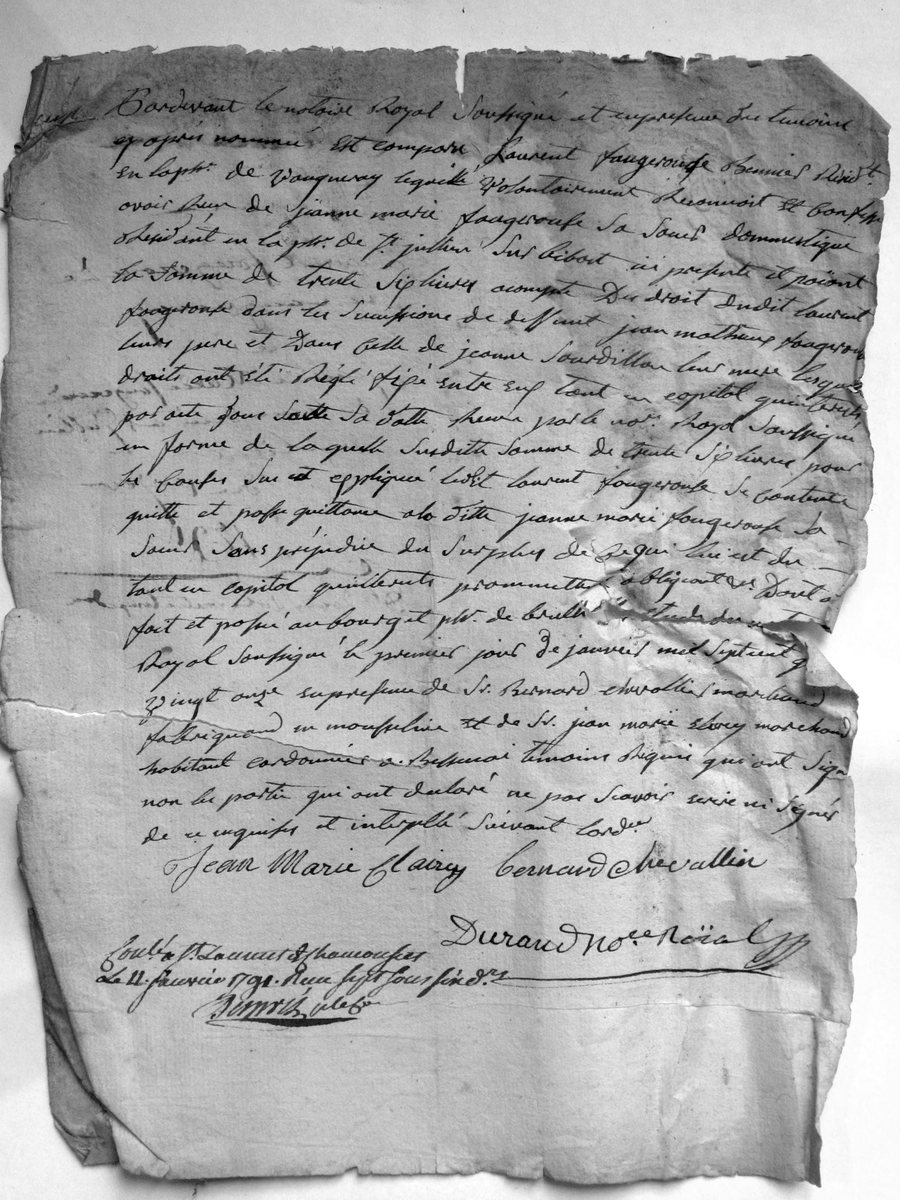 Pardevant le notaire Royal Soussigné et en presence des temoins
cy après nommé est comparu Laurent fougerouse
en la psse. de Vaugneray lequelle volontairement Reconnoit et Confesse
avoir Reçu de jeanne marie fougerouse sa soeur dommestique
Residant en la psse. de St. jullien Sur bibost ici presente et païant
la Somme de trente Six livres acompte Du droit dudit laurent
fougerouse dans les Successions de deffunt jean mathieu fougerouse
leurs pere et Dans Celle de jeanne Sourdillon leur mere lesquels
droits ont été Reglé fixé entre eux tant en capital qu'interets
par acte Sous Sa datte Reçu par le nore. Royal Soussigné
en forme de laquelle Susditte Somme de trente Six livres pour
les Causes Sus et expliqué ledit laurent fougerouse Se Contente
quitte et passe quittance a la ditte jeanne marie fougerouse Sa
Soeur Sans préjudice du Surplus de Ce qui lui est du
tant en capital qu'interets promettant obligeant &c. Dont acte
fait et passé au bourg et psse. de brullioles etude du not
Royal Soussigné le premier jour de janvier mil Sept cent q
Vingt onze en presence de Sr. Bernard chevallier marchand
fabriquand en mousseline et de Sr. jean marie clerey marchand
habitant cordonnier a Bessenai temoins Requis qui ont Signé
non les partie qui ont declaré ne pas Scavoir ecrire ni Signer
de ce enquises et interpellé Suivant lordce
Jean Marie Clairey bernard chevallier
Durand Nore Roïal
Conllé a St. Laurent de chamousset
Le 11. Janvier 1791. Reçu Sept Sous Six drs